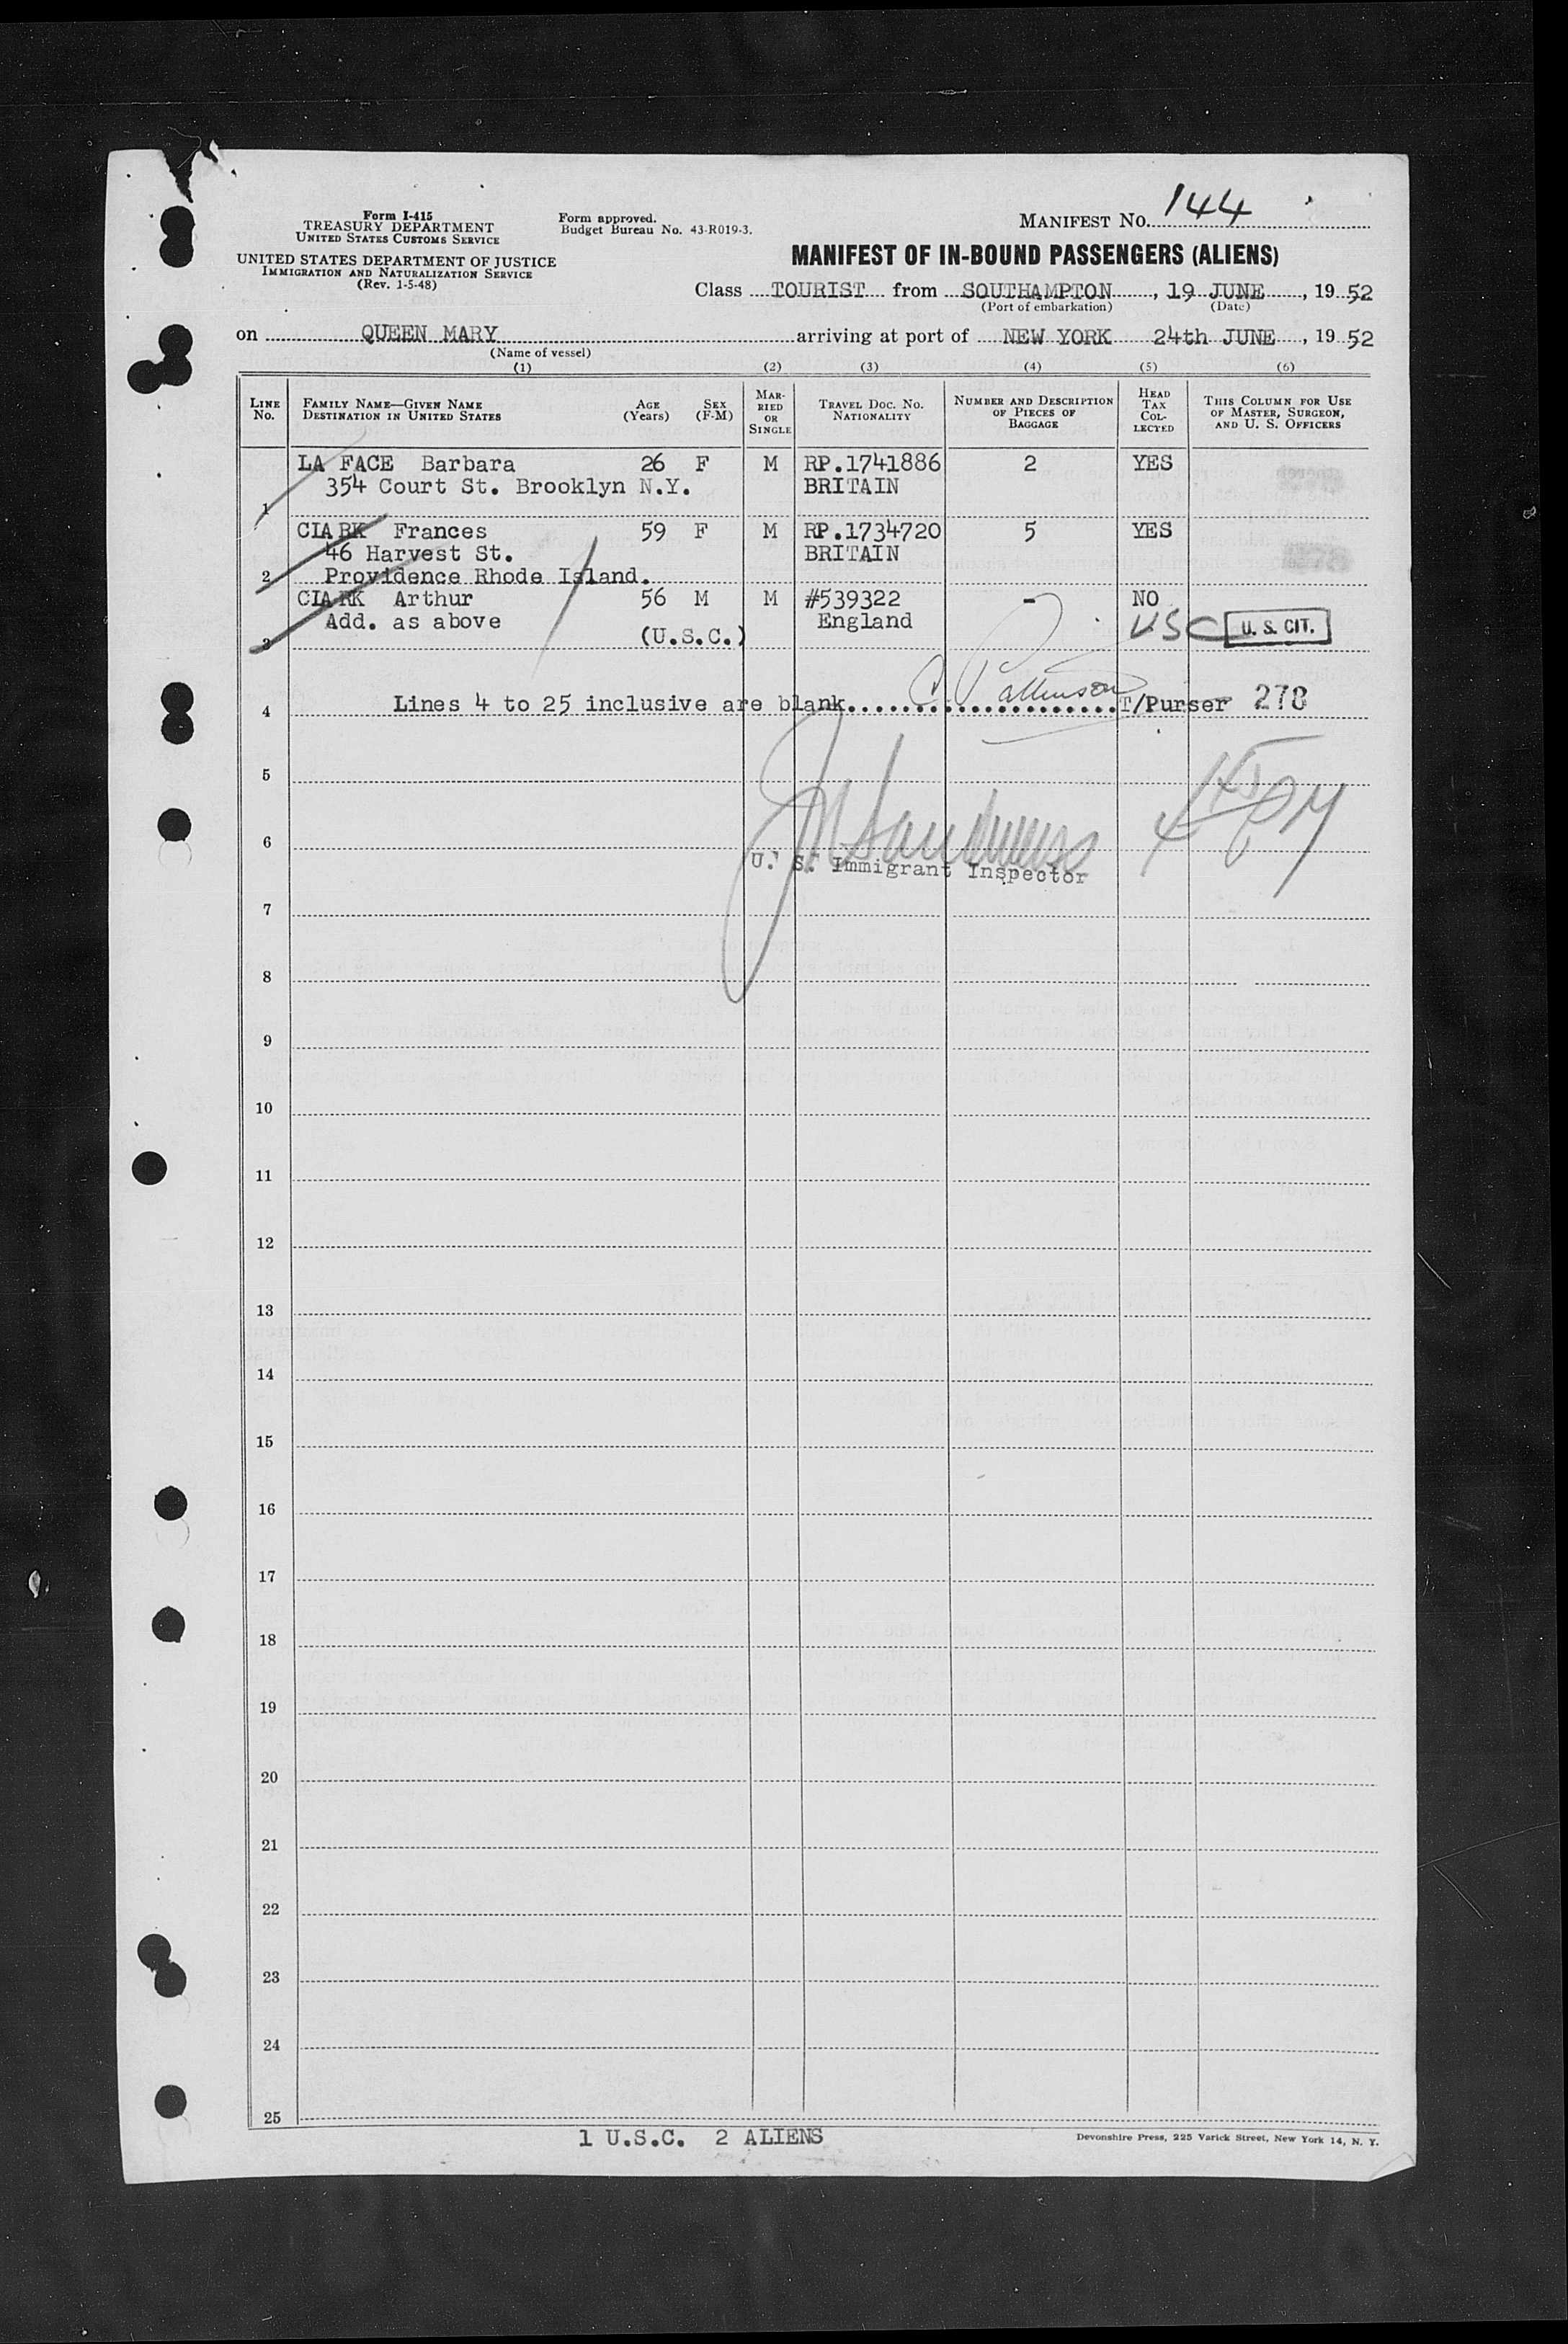 Form I-415
TREASURY DEPARTMENT
UNITED STATES CUSTOMS SERVICE
UNITED STATES DEPARTMENT OF JUSTICE
IMMIGRATION AND NATURALIZATION SERVICE
(Rev. 1-5-48)
Form approved.
Budget Bureau No. 43-R019-3.
MANIFEST NO. 144
MANIFEST OF IN-BOUND PASSENGERS (ALIENS)
Class TOURIST from SOUTHAMPTON, 19 JUNE, 1952
(Port of embarkation) (Date)
on QUEEN MARY arriving at port of NEW YORK 24th JUNE, 1952
(Name of vessel)
(1) (2) (3) (4) (5) (6)
LINE No. FAMILY NAME—GIVEN NAME DESTINATION IN UNITED STATES AGE (Years) SEX (F-M) MARRIED OR SINGLE TRAVEL DOC. NO. NATIONALITY NUMBER AND DESCRIPTION OF PIECES OF BAGGAGE HEAD TAX COLLECTED THIS COLUMN FOR USE OF MASTER, SURGEON, AND U. S. OFFICERS
LA FACE Barbara 26 F M RP.1741886 2 YES
354 Court St. Brooklyn N.Y. BRITAIN
1
CLARK Frances 59 F M RP.1734720 5 YES
46 Harvest St. BRITAIN
2 Providence Rhode Island.
CLARK Arthur 56 M M #539322 - NO
Add. as above (U.S.C.) England USC U. S. CIT.
3
4 Lines 4 to 25 inclusive are blank....................T/Purser 278
5
6
U. S. Immigrant Inspector
7
8
9
10
11
12
13
14
15
16
17
18
19
20
21
22
23
24
25
1 U.S.C. 2 ALIENS
Devonshire Press, 225 Varick Street, New York 14, N. Y.